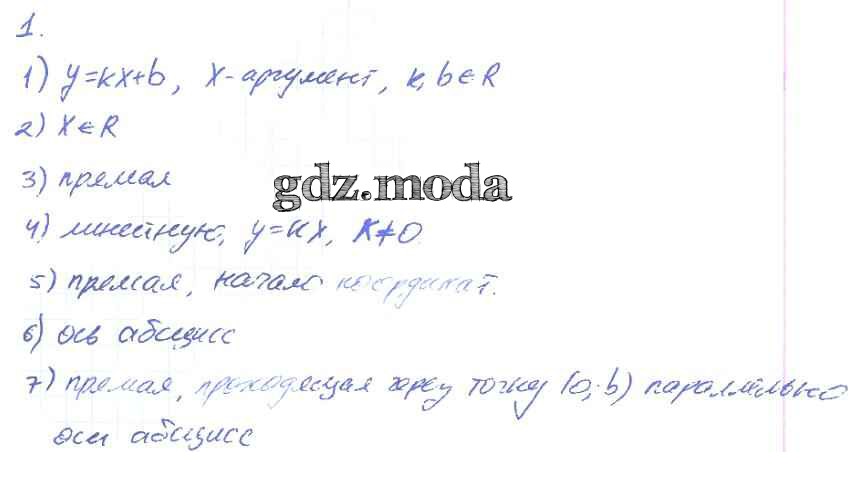 1.
1) y=kx+b, x-аргумент, k, b∈R
2) x∈R
3) прямая
gdz.moda
4) линейную, y=kx, k≠0.
5) прямая, начало координат.
6) ось абсцисс
7) прямая, проходящая через точку (0; b) параллельно
оси абсцисс